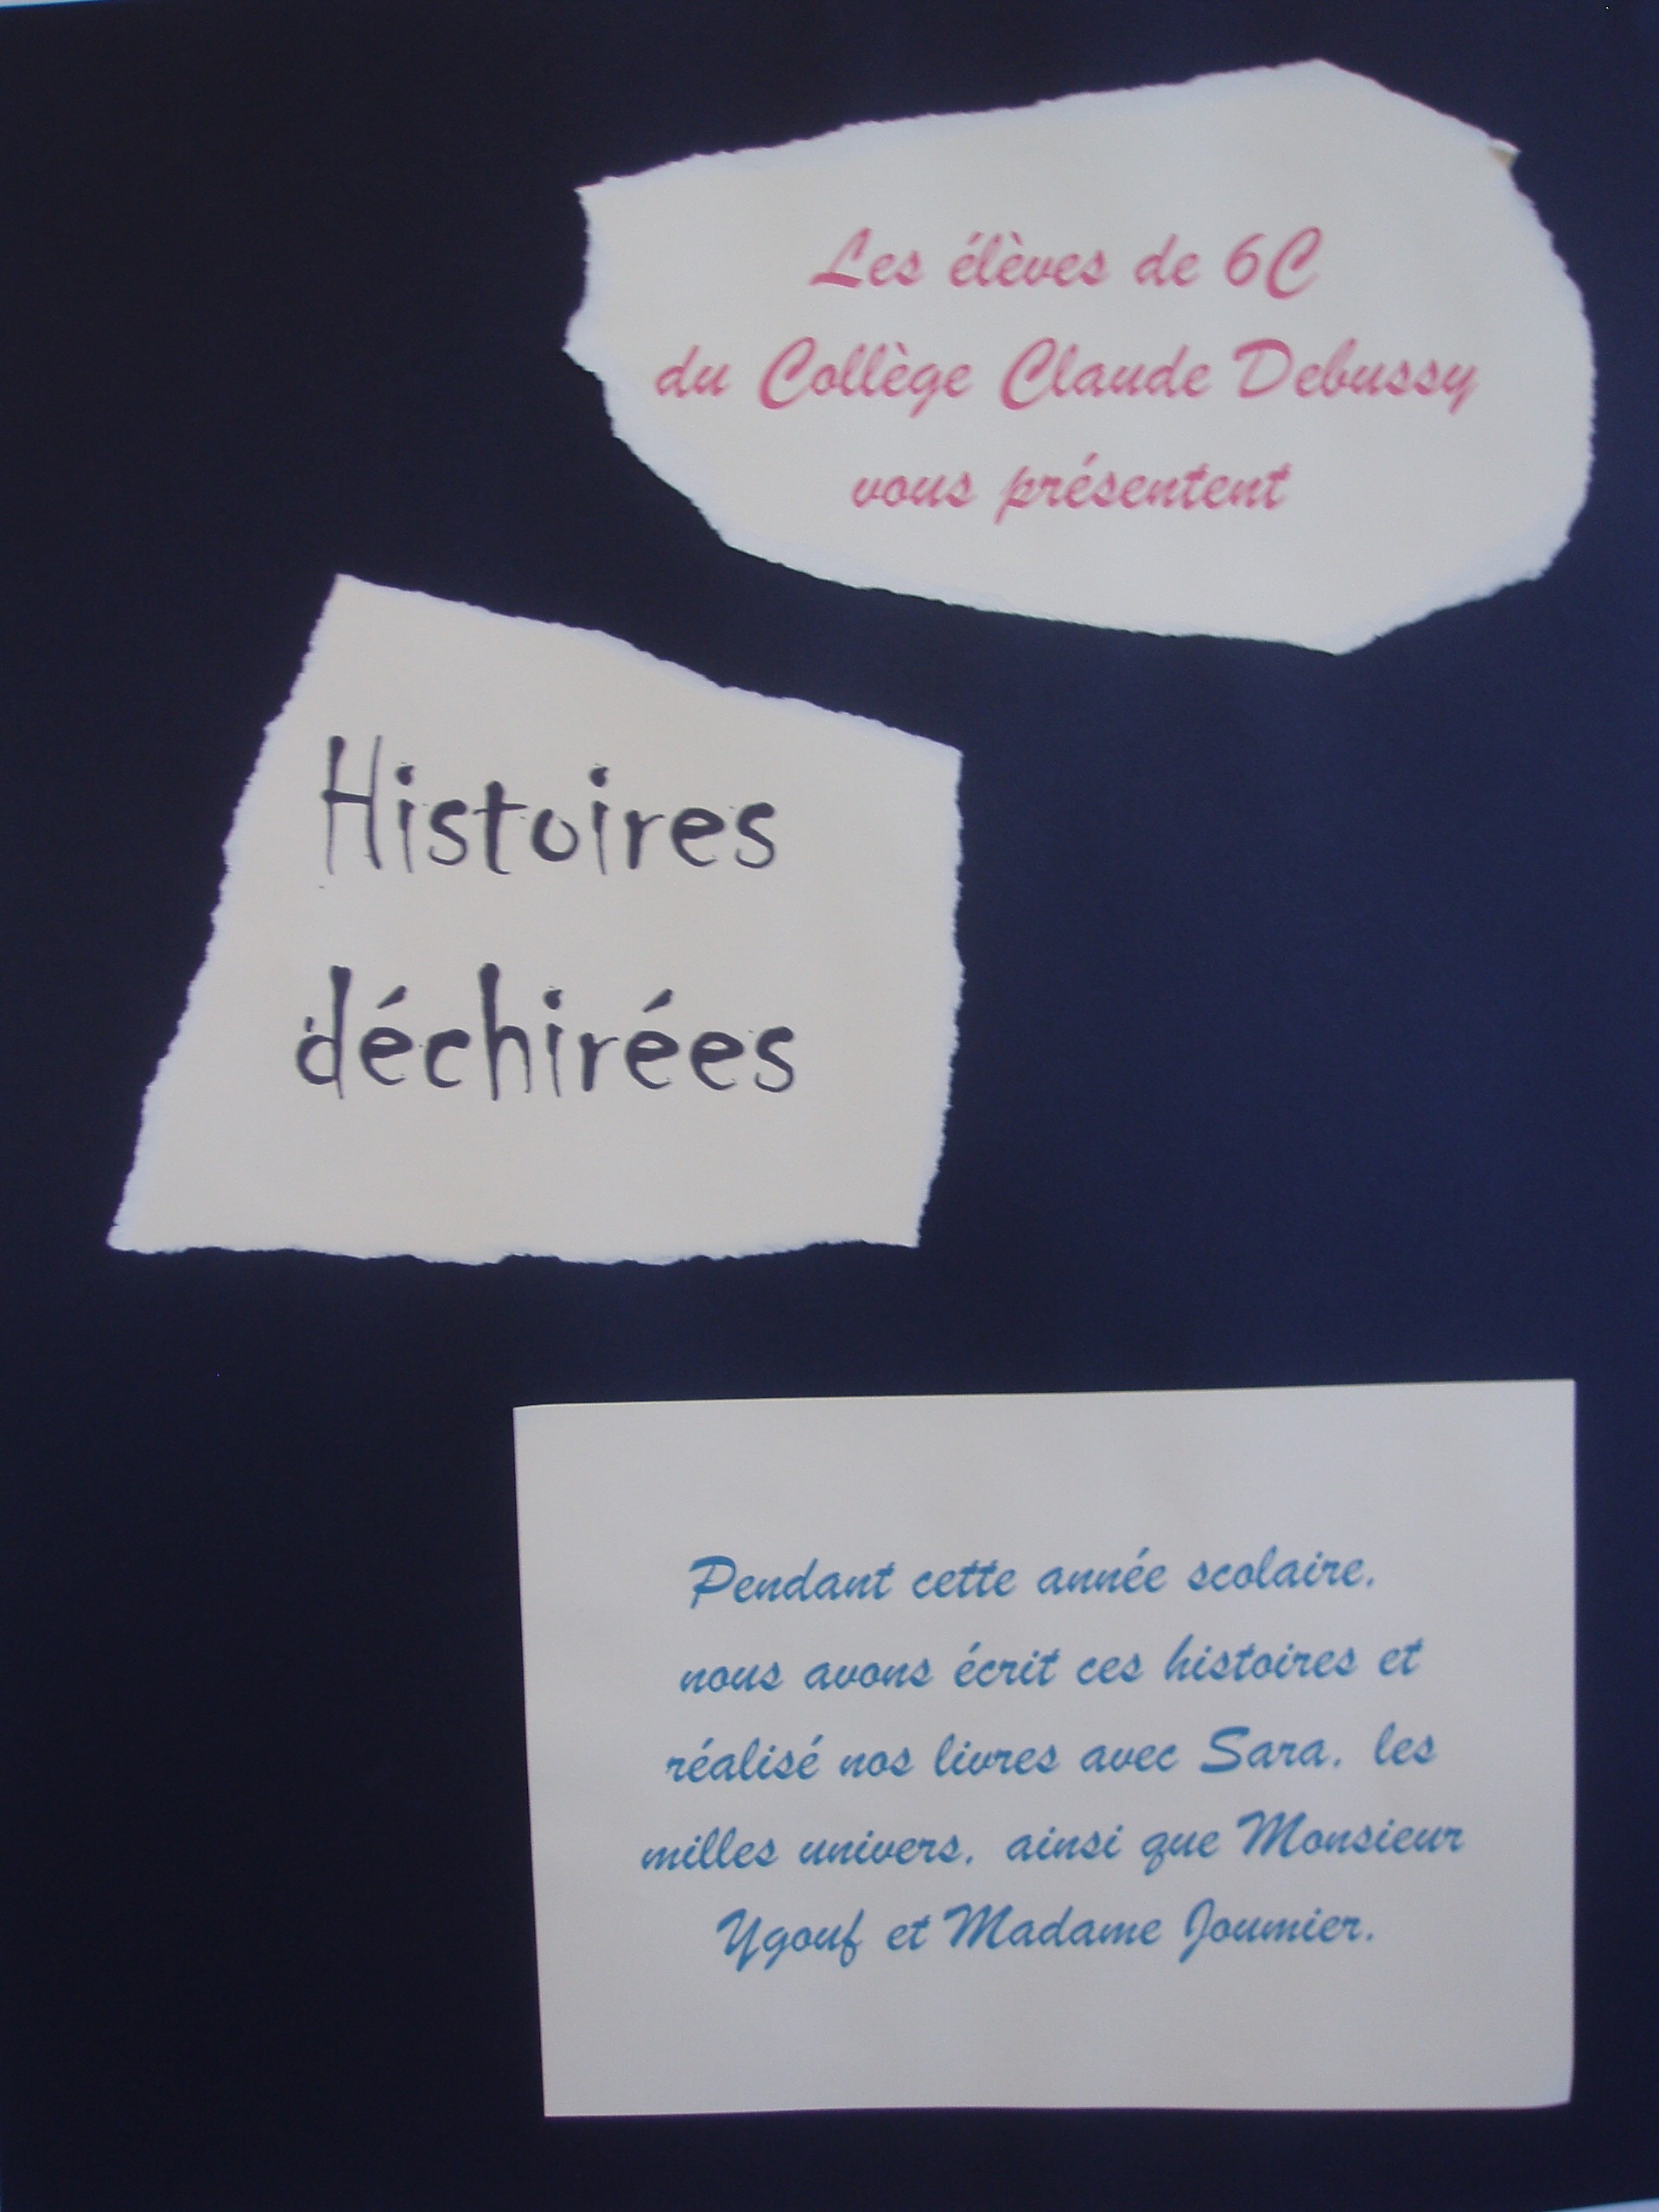 Les élèves de 6C
du Collège Claude Debussy
vous présentent
Histoires
déchirées
Pendant cette année scolaire,
nous avons écrit ces histoires et
réalisé nos livres avec Sara, les
milles univers, ainsi que Monsieur
Ygouf et Madame Joumier.